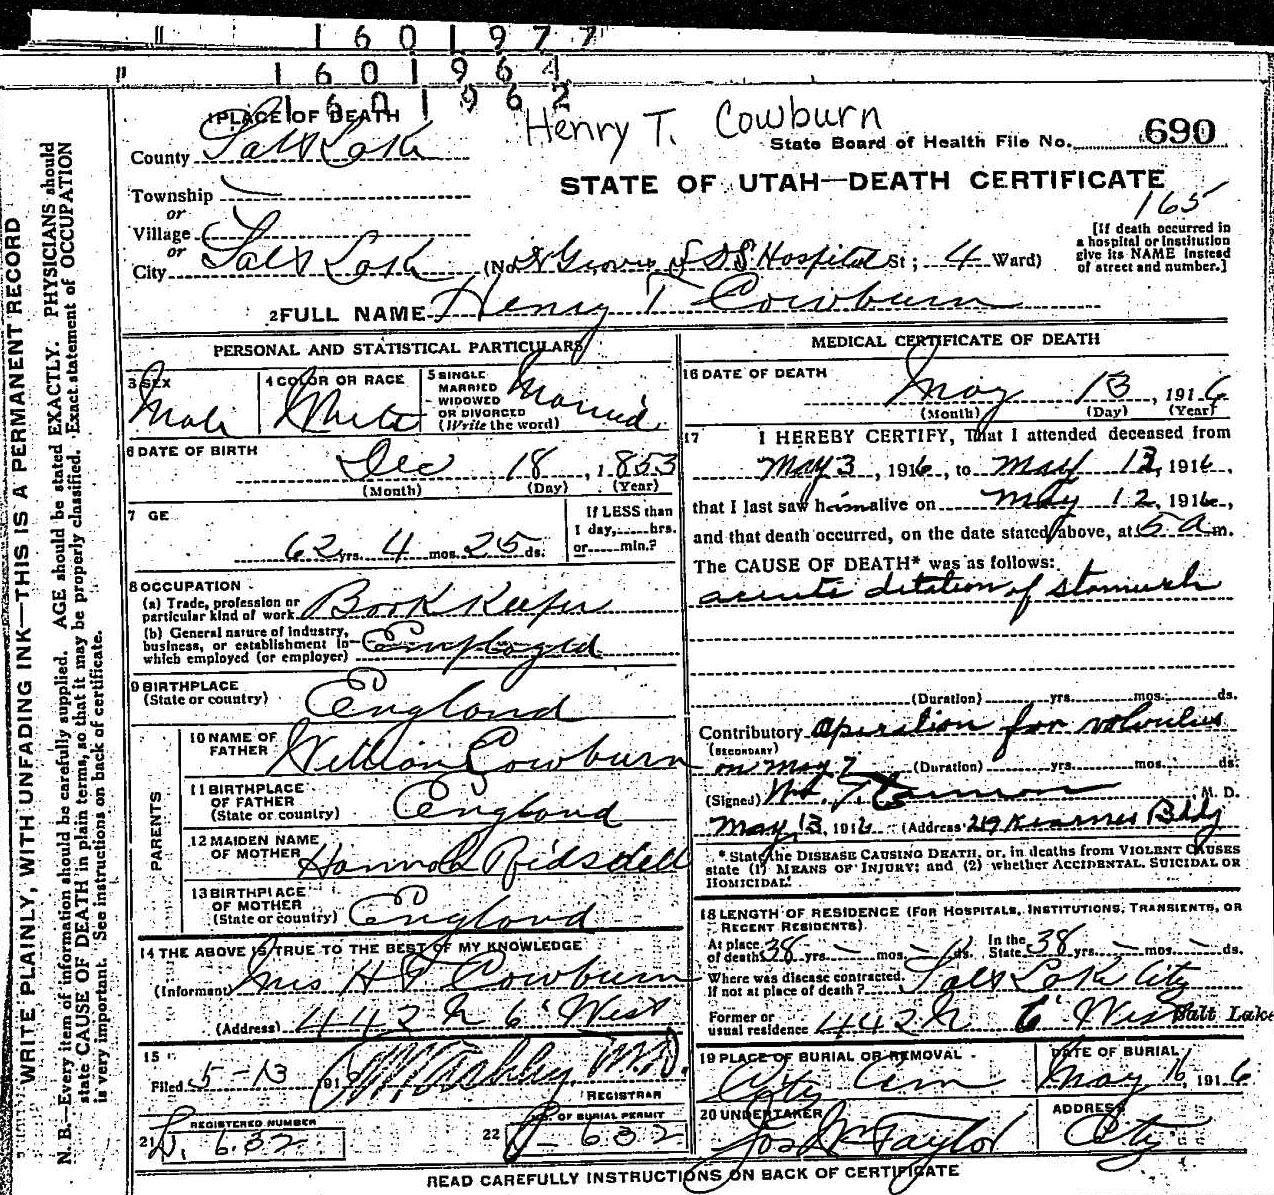 " 1601977
" 1601964
1601962
Henry T. Cowburn
1 PLACE OF DEATH
County Salt Lake
State Board of Health File No. 690
STATE OF UTAH—DEATH CERTIFICATE
165
Township
or
Village
or
City Salt Lake (No. LDS Hospital St; 4 Ward)
[If death occurred in
a hospital or institution
give its NAME instead
of street and number.]
2 FULL NAME Henry T Cowburn
PERSONAL AND STATISTICAL PARTICULARS
3 SEX
Male
4 COLOR OR RACE
White
5 SINGLE
MARRIED
WIDOWED
OR DIVORCED
(Write the word)
Married
6 DATE OF BIRTH
Dec 18, 1853
(Month) (Day) (Year)
7 GE
62 yrs. 4 mos. 25 ds.
If LESS than
1 day, hrs.
or min.?
8 OCCUPATION
(a) Trade, profession or
particular kind of work Book Keeper
(b) General nature of industry,
business, or establishment in
which employed (or employer) Employed
9 BIRTHPLACE
(State or country) England
PARENTS
10 NAME OF
FATHER William Cowburn
11 BIRTHPLACE
OF FATHER
(State or country) England
12 MAIDEN NAME
OF MOTHER Hannah Ridsdell
13 BIRTHPLACE
OF MOTHER
(State or country) England
14 THE ABOVE IS TRUE TO THE BEST OF MY KNOWLEDGE
(Informant) Mrs H T Cowburn
(Address) 442 N 6 West
15
Filed 5-13 191
M.D.
REGISTRAR
21 REGISTERED NUMBER
632
22 NO. OF BURIAL PERMIT
632
MEDICAL CERTIFICATE OF DEATH
16 DATE OF DEATH
May 13, 1916
(Month) (Day) (Year)
17 I HEREBY CERTIFY, That I attended deceased from
May 3, 1916, to May 13, 1916,
that I last saw him alive on May 12, 1916,
and that death occurred, on the date stated above, at 5 a m.
The CAUSE OF DEATH* was as follows:
acute dilation of stomach
(Duration) yrs. mos. ds.
Contributory operation for volvulus
(SECONDARY)
on May 7 (Duration) yrs. mos. ds.
(Signed) M. D.
May 13, 1916 (Address 219 Kearns Bldg
*State the DISEASE CAUSING DEATH, or, in deaths from VIOLENT CAUSES
state (1) MEANS OF INJURY; and (2) whether ACCIDENTAL, SUICIDAL OR
HOMICIDAL.
18 LENGTH OF RESIDENCE (FOR HOSPITALS, INSTITUTIONS, TRANSIENTS, OR
RECENT RESIDENTS)
At place
of death 38 yrs. — mos. ds. In the
State 38 yrs. — mos. — ds.
Where was disease contracted,
if not at place of death? Salt Lake City
Former or
usual residence 442 N 6 West Salt Lake
19 PLACE OF BURIAL OR REMOVAL
City Cem
DATE OF BURIAL
May 16, 1916
20 UNDERTAKER
Jos Wm Taylor
ADDRESS
City
READ CAREFULLY INSTRUCTIONS ON BACK OF CERTIFICATE
WRITE PLAINLY, WITH UNFADING INK—THIS IS A PERMANENT RECORD
N. B.—Every item of information should be carefully supplied. AGE should be stated EXACTLY. PHYSICIANS should
state CAUSE OF DEATH in plain terms, so that it may be properly classified. Exact statement of OCCUPATION
is very important. See instructions on back of certificate.